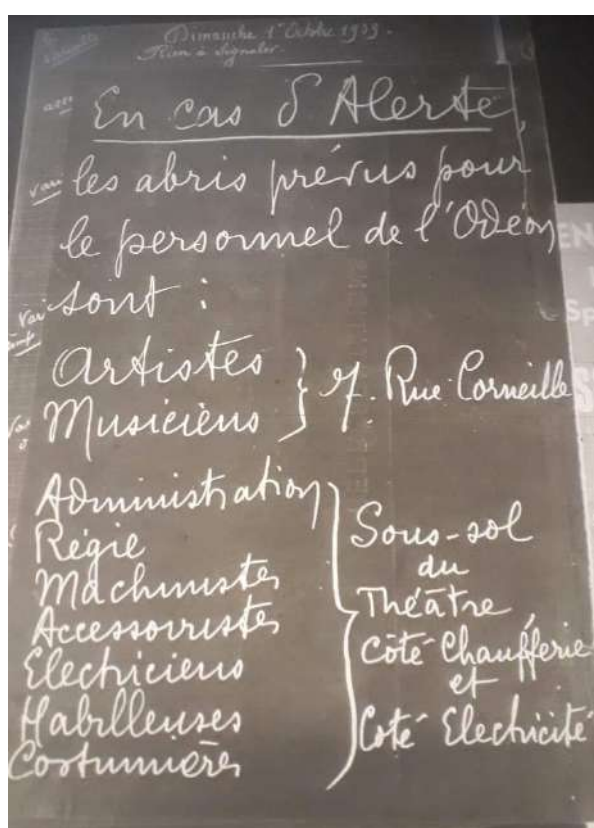 Dimanche 1er Octobre 1939.
Rien à Signaler.
En cas d'Alerte,
les abris prévus pour
le personnel de l'Odéon
sont :
Artistes
Musiciens
7. Rue Corneille
Administration
Régie
Machinistes
Accessoiristes
Electriciens
Habilleuses
Costumières
Sous-sol
du
Théâtre
Côté Chaufferie
et
Coté Electricité